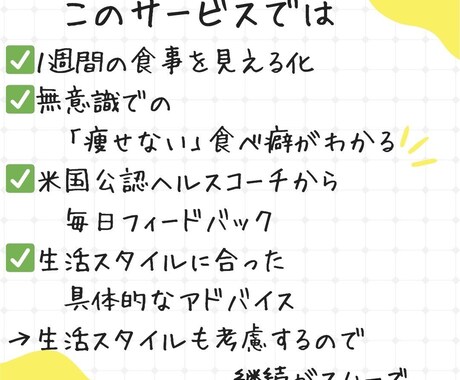 このサービスでは
✅1週間の食事を見える化
✅無意識での
「痩せない」食べ癖がわかる
✅米国公認ヘルスコーチから
毎日フィードバック
✅生活スタイルに合った
具体的なアドバイス
→生活スタイルも考慮するので
継続がスムーズ